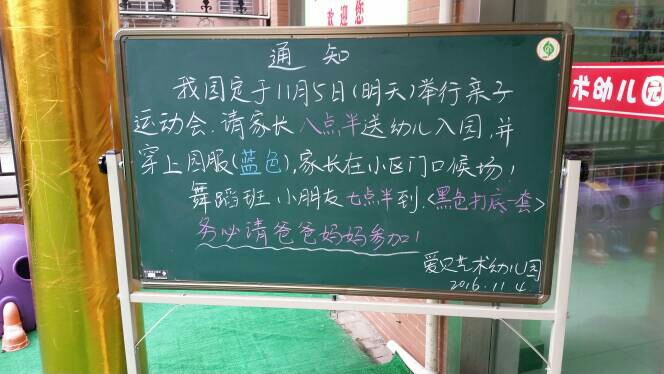 欢迎您
通知
我园定于11月5日(明天)举行亲子
运动会.请家长八点半送幼儿入园,并
穿上园服(蓝色),家长在小区门口候场!
舞蹈班小朋友七点半到.<黑色打底一套>
务必请爸爸妈妈参加!
爱贝艺术幼儿园
2016.11.4
术幼儿园